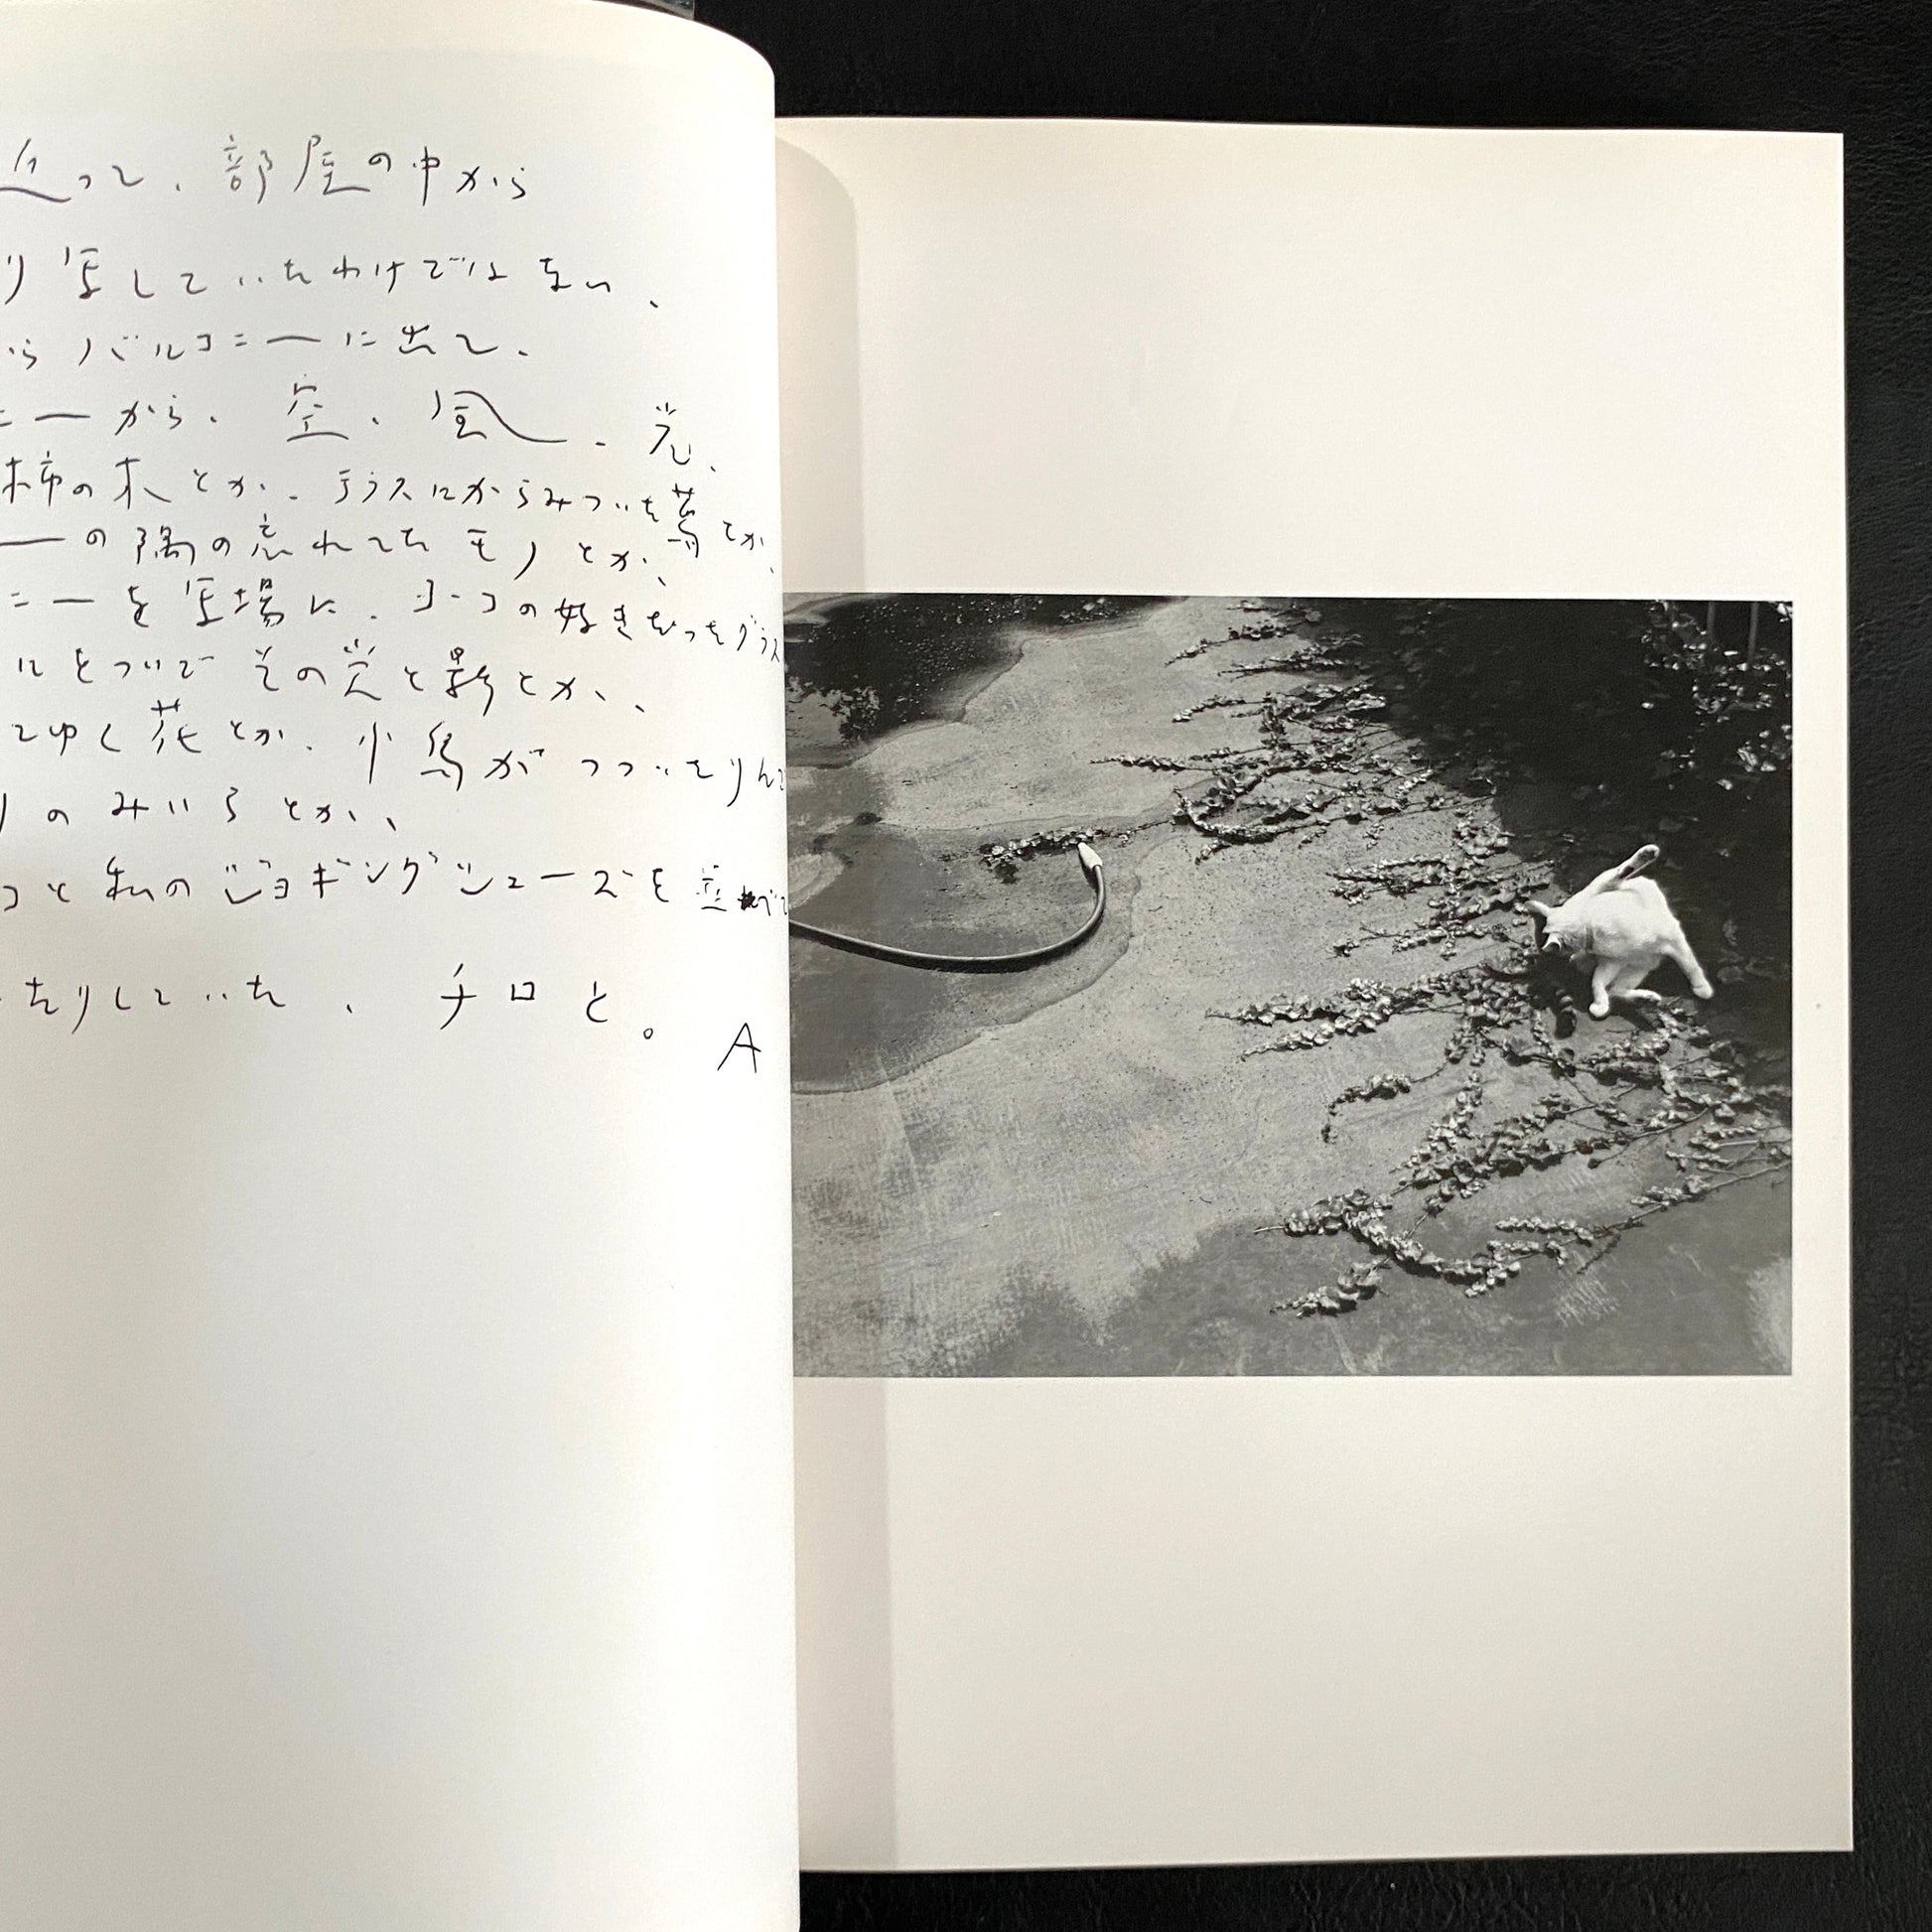 って、部屋の中から
り写していたわけではない、
らバルコニーに出て、
ニーから、空、風、光、
柿の木とか、テラスにからみついた蔦とか、
ーの隅の忘れてたモノとか、
ニーを写場に、ヨーコの好きだったグラス
ルをついでその光と影とか、
てゆく花とか、小鳥がつついたりん
りのみいらとか、
コと私のジョギングシューズを並べて
たりしていた、チロと。
A